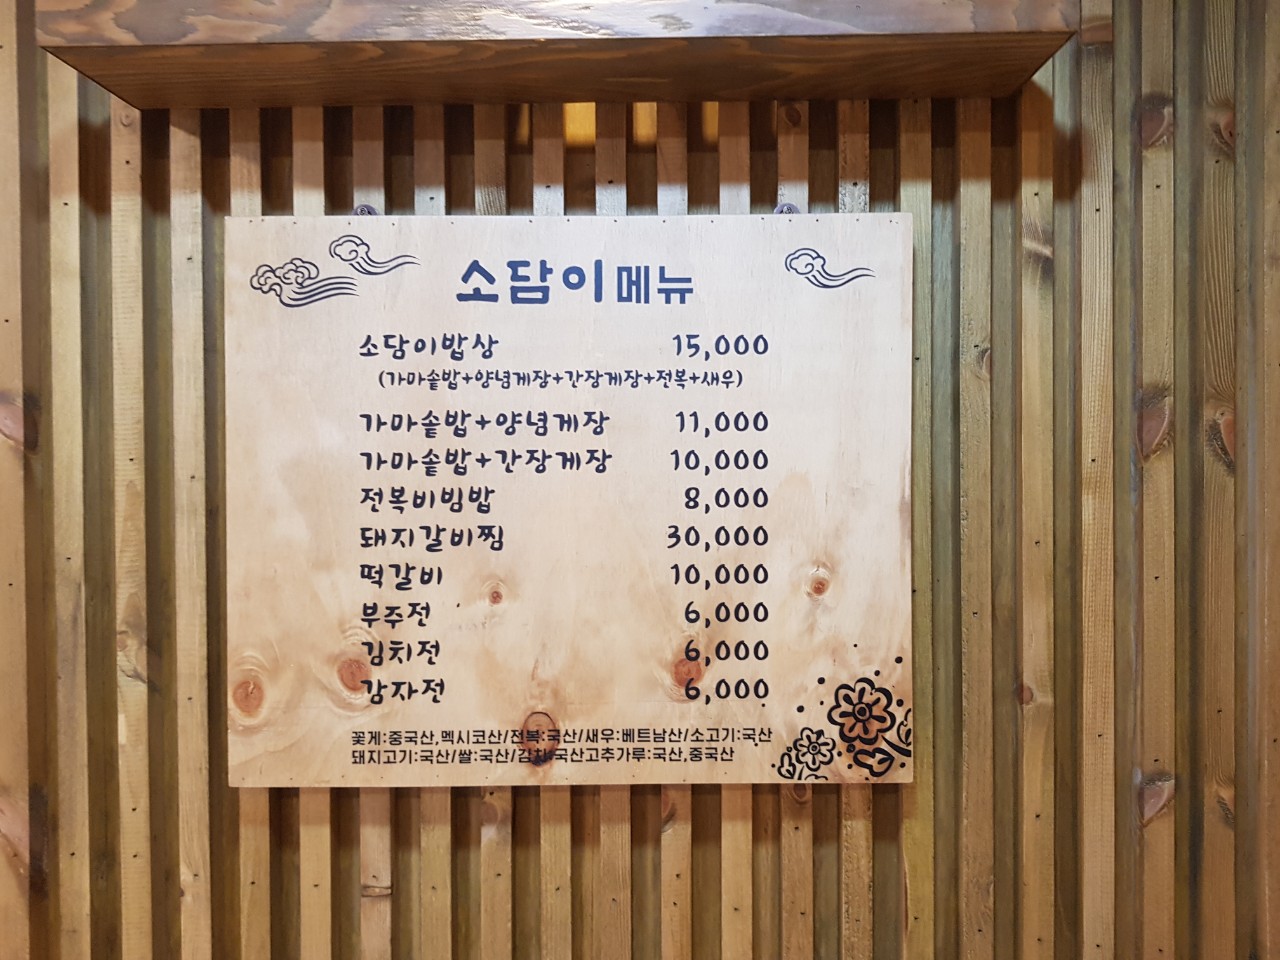 소담이 메뉴
소담이밥상 15,000
(가마솥밥+양념게장+간장게장+전복+새우)
가마솥밥+양념게장 11,000
가마솥밥+간장게장 10,000
전복비빔밥 8,000
돼지갈비찜 30,000
떡갈비 10,000
부추전 6,000
김치전 6,000
감자전 6,000
꽃게:중국산,멕시코산/전복:국산/새우:베트남산/소고기:국산
돼지고기:국산/쌀:국산/김치:국산고추가루:국산,중국산